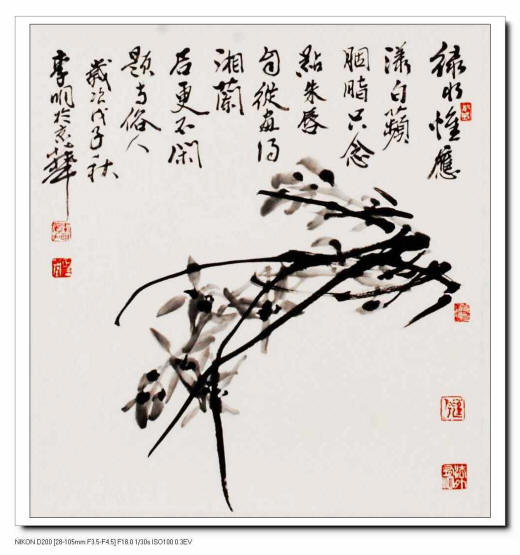 綠水惟應
漾白蘋
胭脂只念
點朱唇
自從畫得
湘蘭
后更不閑
題与俗人
歲次戊子秋
李明於京華
NIKON D200 [28-105mm F3.5-F4.5] F18.0 1/30s ISO100 0.3EV